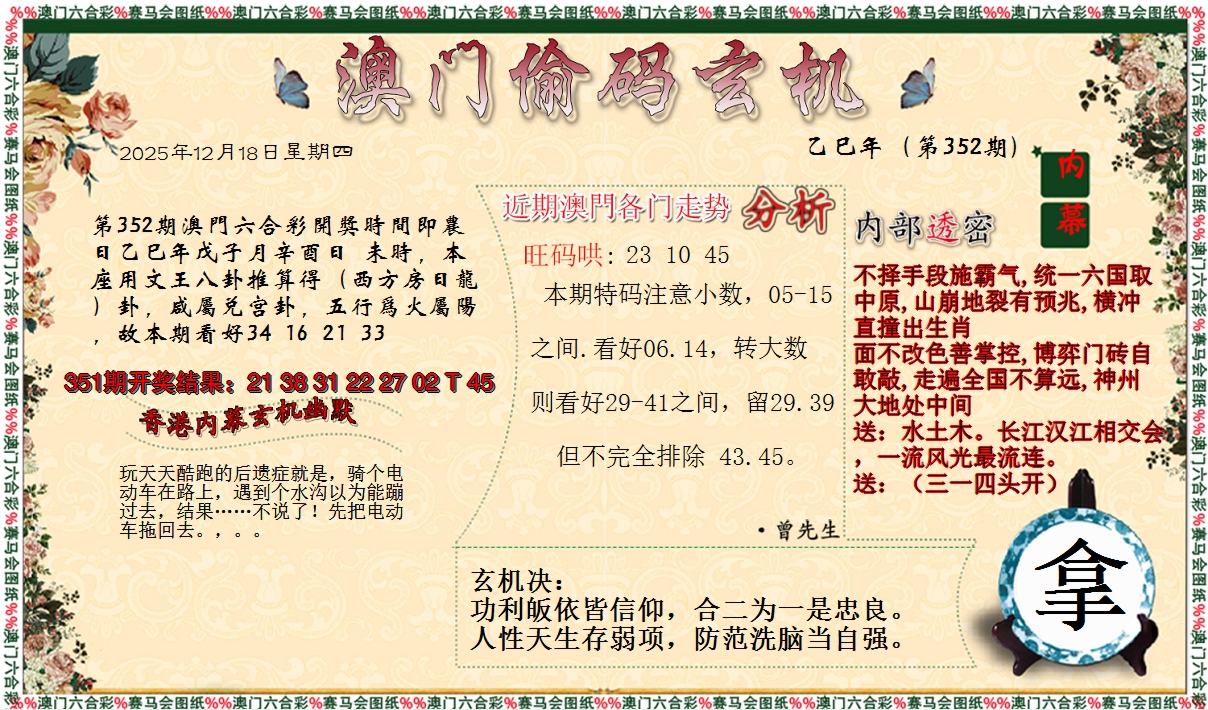 %%澳门六合彩%赛马会图纸%%澳门六合彩%赛马会图纸%%澳门六合彩%赛马会图纸%%澳门六合彩%赛马会图纸%%澳门六合彩%赛马会图纸%%澳门六合彩%赛马会图纸%%
澳门偷码玄机
2025年12月18日星期四
乙巳年（第352期）
内
幕
第352期澳門六合彩開獎時間即農
日乙巳年戊子月辛酉日 未時，本
座用文王八卦推算得（西方房日龍
）卦，咸屬兑宫卦，五行爲火屬陽
，故本期看好34 16 21 33
351期开奖结果：21 38 31 22 27 02 T 45
香港内幕玄机幽默
玩天天酷跑的后遗症就是，骑个电
动车在路上，遇到个水沟以为能蹦
过去，结果……不说了！先把电动
车拖回去。，。。
近期澳門各门走势 分析
旺码哄：23 10 45
本期特码注意小数，05-15
之间.看好06.14，转大数
则看好29-41之间，留29.39
但不完全排除 43.45。
·曾先生
内部透密
不择手段施霸气,统一六国取
中原,山崩地裂有预兆,横冲
直撞出生肖
面不改色善掌控,博弈门砖自
敢敲,走遍全国不算远,神州
大地处中间
送：水土木。长江汉江相交会
，一流风光最流连。
送：（三一四头开）
玄机决：
功利皈依皆信仰，合二为一是忠良。
人性天生存弱项，防范洗脑当自强。
拿
%%澳门六合彩%赛马会图纸%%澳门六合彩%赛马会图纸%%澳门六合彩%赛马会图纸%%澳门六合彩%赛马会图纸%%澳门六合彩%赛马会图纸%%澳门六合彩%赛马会图纸%%